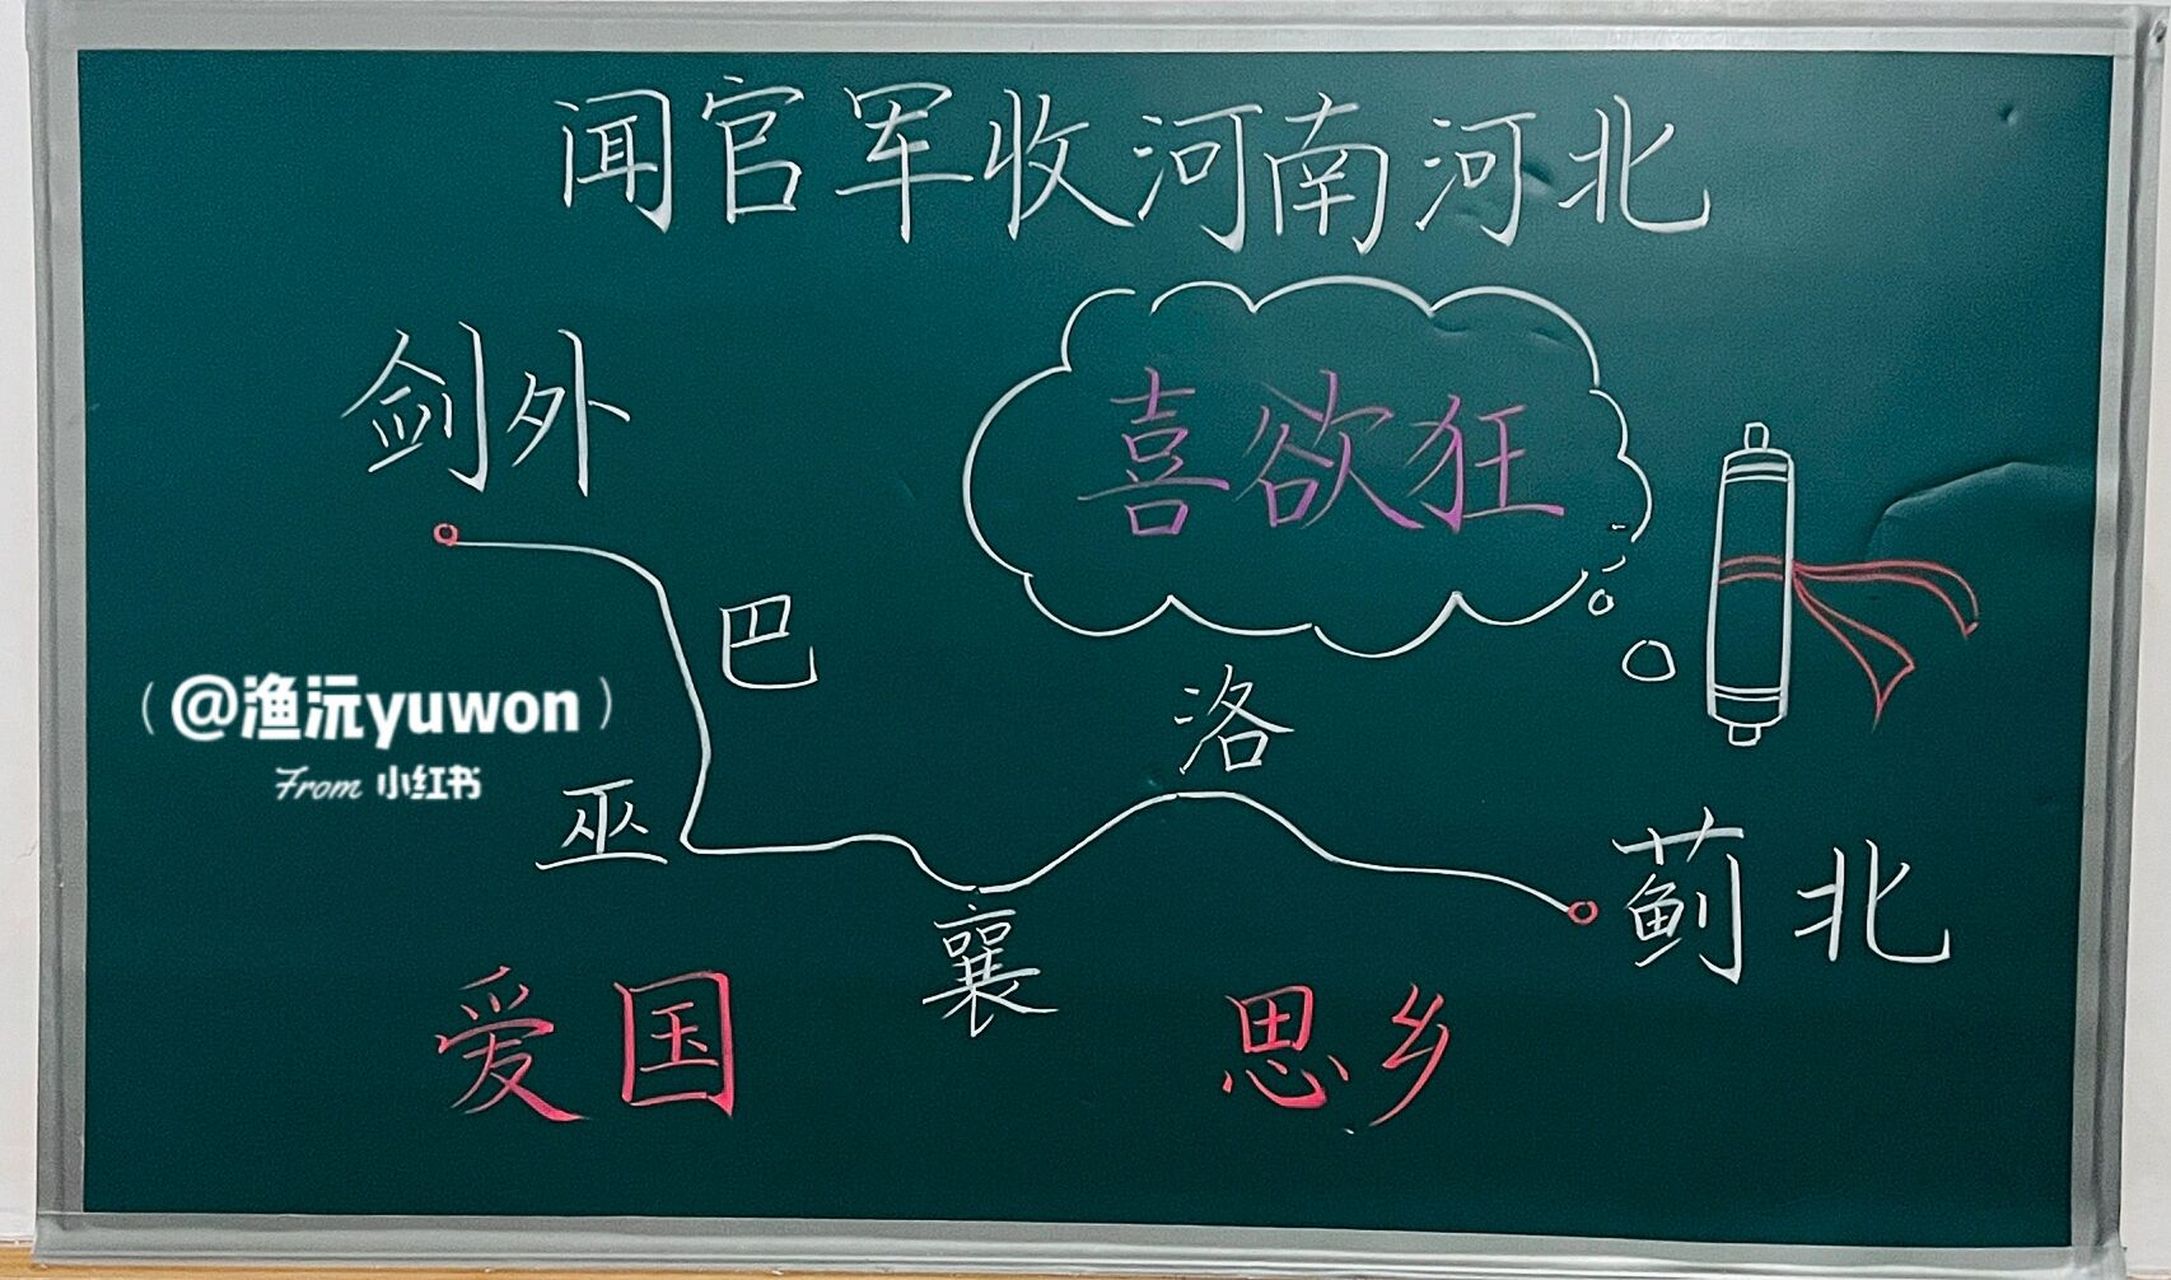 闻官军收河南河北
剑外
喜欲狂
巴
洛
(@渔沅yuwon)
From 小红书
巫
蓟北
襄
爱国
思乡